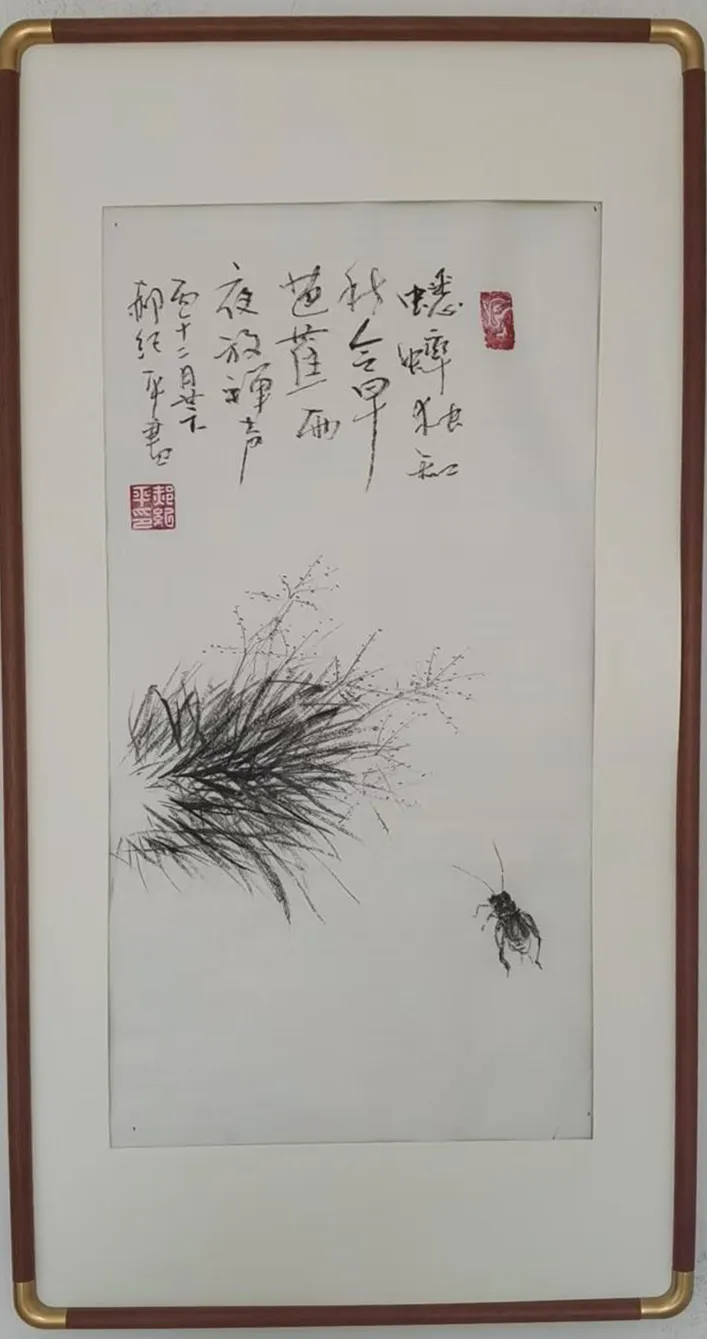 蟋蟀独知
秋令早
芭蕉雨
夜放禅声
十二月廿六
郝纪平画
郝纪平印